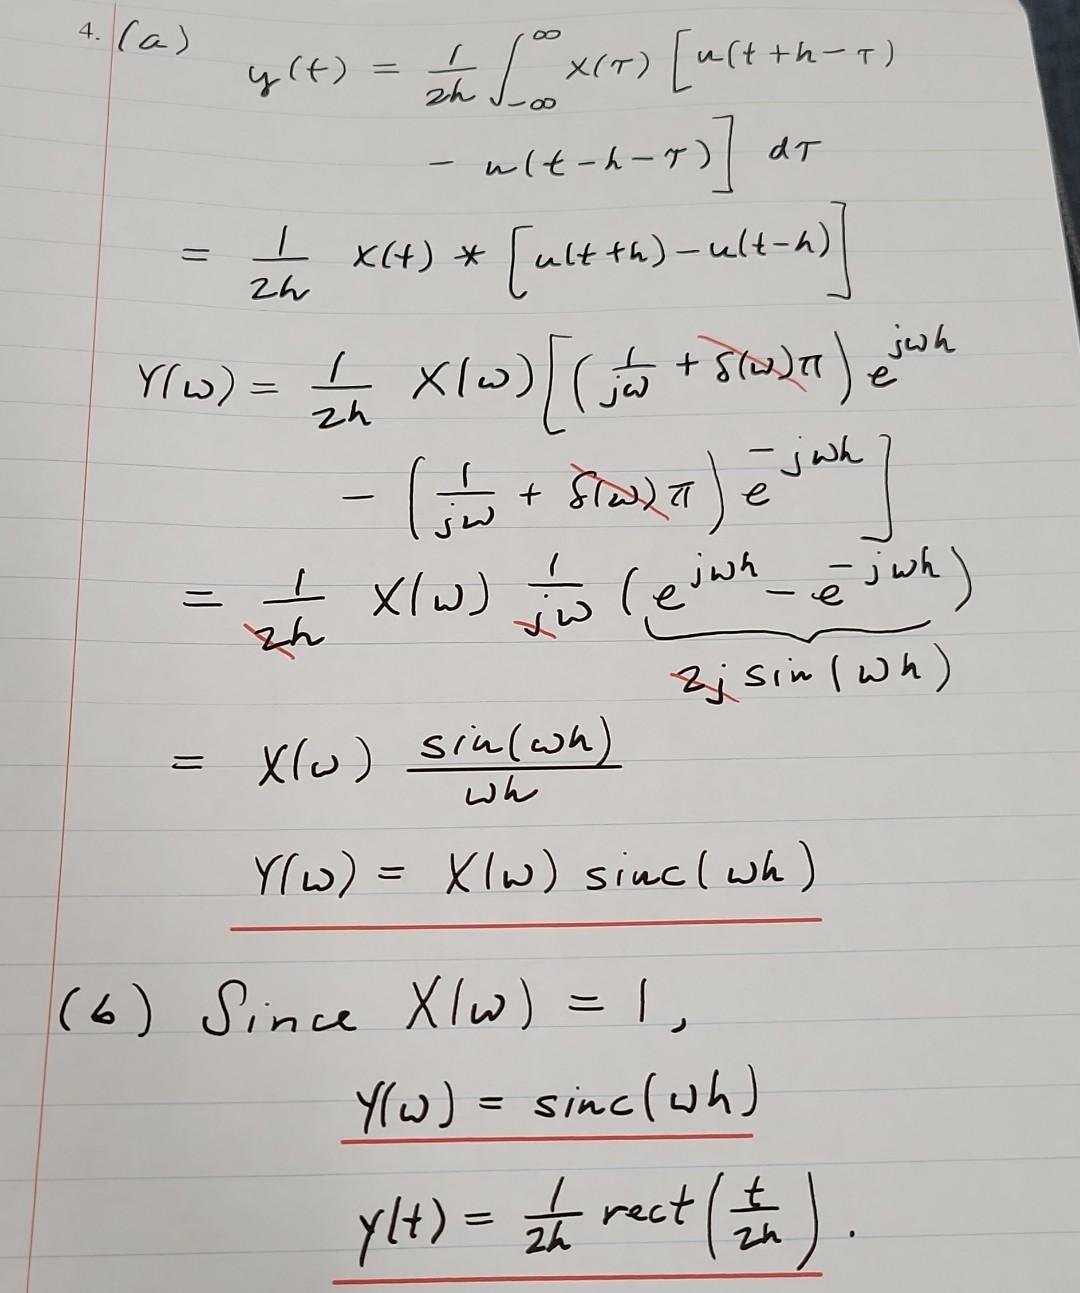 4. (a)
y(t) = 1/2h ∫_{-∞}^{∞} x(τ) [u(t+h-τ)
- u(t-h-τ)] dτ
= 1/2h x(t) * [u(t+h) - u(t-h)]
Y(ω) = 1/2h X(ω) [(1/jω + δ(ω)π) e^{jωh}
- (1/jω + δ(ω)π) e^{-jωh}]
= 1/2h X(ω) 1/jω (e^{jωh} - e^{-jωh})
2j sin(ωh)
= X(ω) sin(ωh)/ωh
Y(ω) = X(ω) sinc(ωh)
(b) Since X(ω) = 1,
Y(ω) = sinc(ωh)
y(t) = 1/2h rect(t/2h).